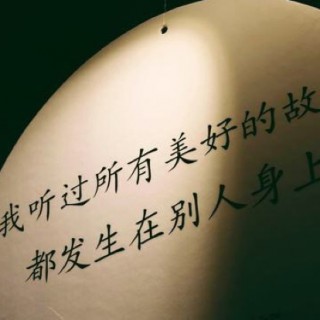 我听过所有美好的故
都发生在别人身上